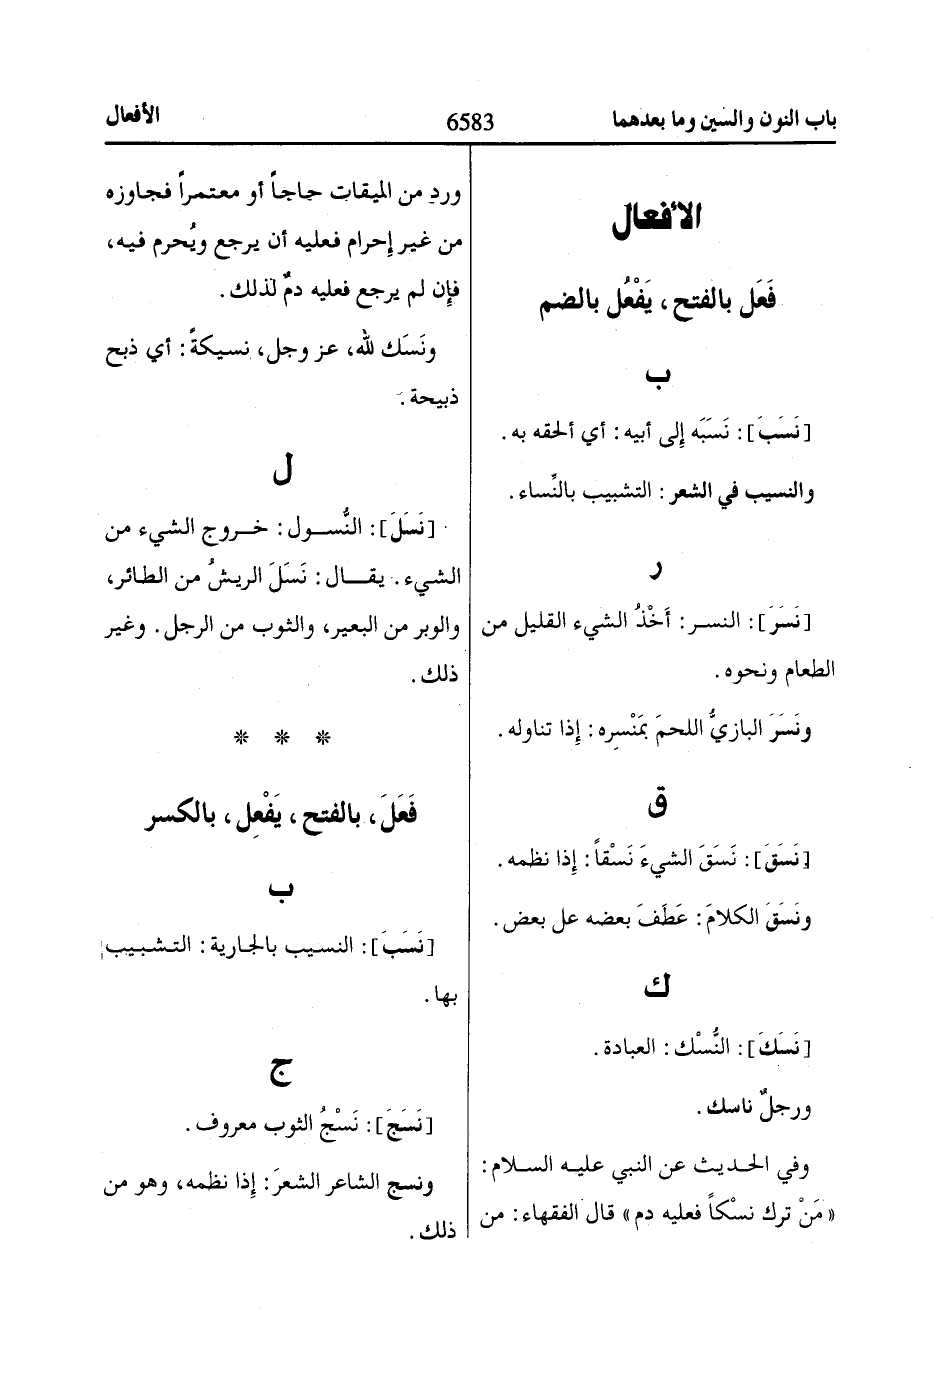 باب النون والسين وما بعدهما
6583
الأفعال
الأفعال
فَعَل بالفتح، يَفْعُل بالضم
ب
[نَسَبَ]: نَسَبَه إلى أبيه: أي ألحقه به.
والنسيب في الشعر: التشبيب بالنِّساء.
ر
[نَسَرَ]: النسر: أَخْذُ الشيء القليل من
الطعام ونحوه.
ونَسَرَ البازيُّ اللحمَ بمَنْسِره: إذا تناوله.
ق
[نَسَقَ]: نَسَقَ الشيءَ نَسْقاً: إذا نظمه.
ونَسَقَ الكلامَ: عَطَفَ بعضه عل بعض.
ك
[نَسَكَ]: النُّسْك: العبادة.
ورجلٌ ناسك.
وفي الحديث عن النبي عليه السلام:
«مَنْ ترك نسْكاً فعليه دم» قال الفقهاء: من
ورد من الميقات حاجاً أو معتمراً فجاوزه
من غير إحرام فعليه أن يرجع ويُحرم فيه،
فإن لم يرجع فعليه دمٌ لذلك.
ونَسَك لله، عز وجل، نسيكةً: أي ذبح
ذبيحة.
ل
[نَسَلَ]: النُّسول: خروج الشيء من
الشيء. يقال: نَسَلَ الريشُ من الطائر،
والوبر من البعير، والثوب من الرجل. وغير
ذلك.
* * *
فَعَلَ، بالفتح، يَفْعِل، بالكسر
ب
[نَسَبَ]: النسيب بالجارية: التشبيب
بها.
ج
[نَسَجَ]: نَسْجُ الثوب معروف.
ونسج الشاعر الشعرَ: إذا نظمه، وهو من
ذلك.